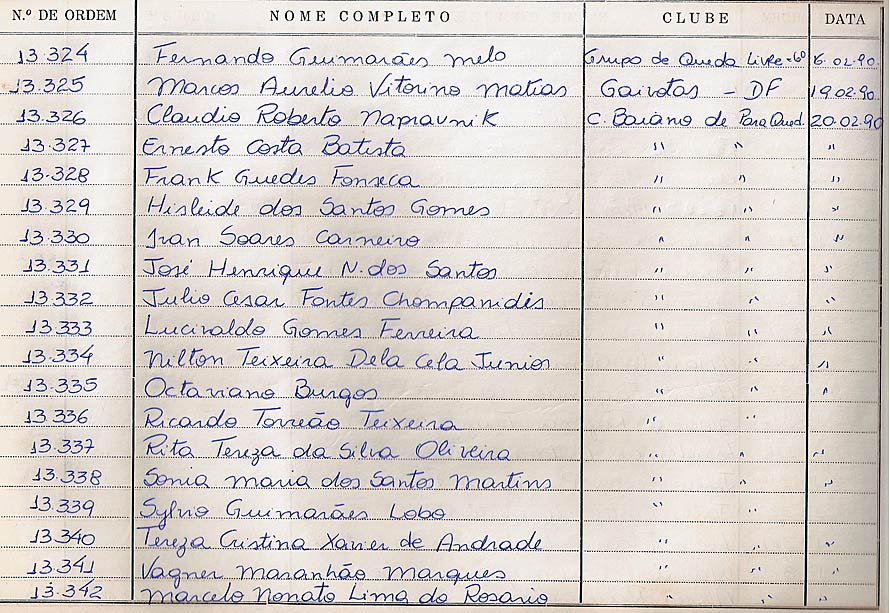 N.º DE ORDEM NOME COMPLETO CLUBE DATA
13.324 Fernando Guimarães melo Grupo de Queda Livre - 6º 16.02.90
13.325 Marcos Aurelio Vitorino Matias Gaivotas - DF 19.02.90
13.326 Claudio Roberto Napravnik C. Baiano de Para Qued. 20.02.90
13.327 Ernesto Costa Batista " " "
13.328 Frank Guedes Fonseca " " "
13.329 Hisleide dos Santos Gomes " " "
13.330 Ivan Soares Carneiro " " "
13.331 José Henrique N. dos Santos " " "
13.332 Julio Cesar Fontes Chompanidis " " "
13.333 Lucivaldo Gomes Ferreira " " "
13.334 Nilton Teixeira Dela Cela Junior " " "
13.335 Octaviano Burgos " " "
13.336 Ricardo Torreão Teixeira " " "
13.337 Rita Tereza da Silva Oliveira " " "
13.338 Sonia Maria dos Santos Martins " " "
13.339 Sylvio Guimarães Lobo " " "
13.340 Tereza Cristina Xavier de Andrade " " "
13.341 Vagner Maranhão Marques " " "
13.342 Marcelo Nonato Lima do Rosario " " "